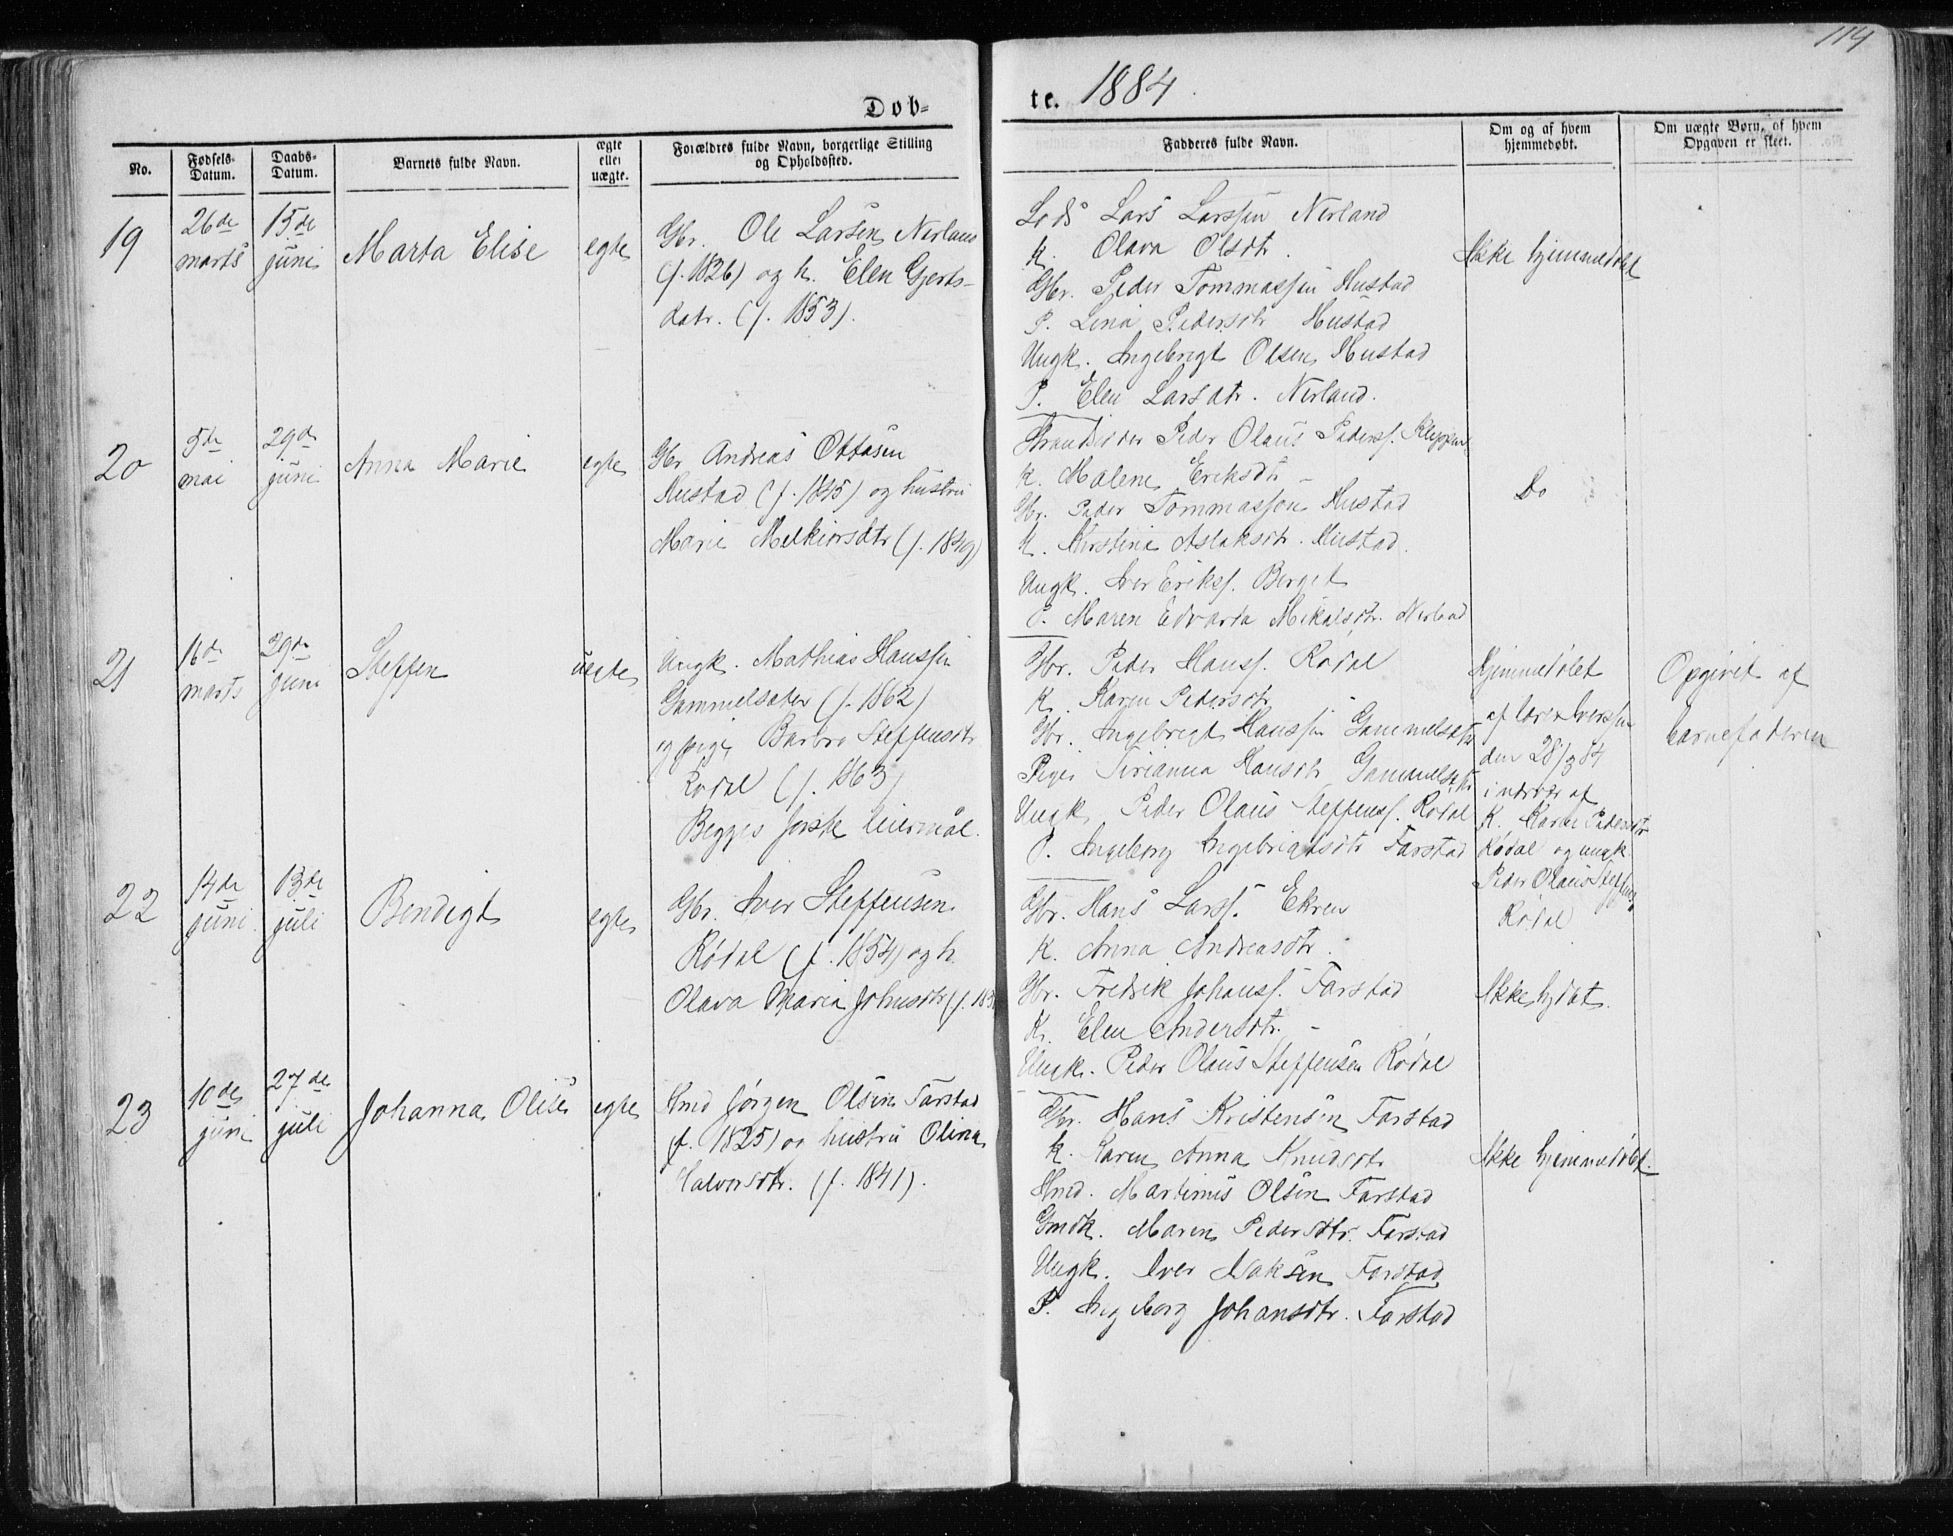 114
Døb-
te. 1884.
No.
Fødsels-
Datum.
Daabs-
Datum.
Barnets fulde Navn.
ægte
eller
uægte.
Forældres fulde Navn, borgerlige Stilling
og Opholdssted.
Fadderes fulde Navn.
Om og af hvem
hjemmedøbt.
Om uægte Børn, af hvem
Opgaven er skeet.
19
26de
marts
15de
juni
Marta Elise
egte
Gbr. Ole Larsen Nerland
(f. 1826) og h. Elen Gjerts-
datr. (f. 1853).
Lars Larssen Nerland
K. Olava Olsdtr.
Gbr. Peder Tommassen Hustad
P. Lina Pedersdtr Hustad
Ungk. Ingebrigt Olsen Hustad
P. Elen Larsdtr. Nerland.
Ikke hjemmedøbt
20
5de
mai
29de
juni
Anna Marie
egte
Gbr Andreas Ottosen
Hustad (f. 1845) og hustru
Marie Melkiorsdtr (f. 1849)
Strandsidder Peder Olaus Peders.
K. Malene Eriksdtr –
Gbr. Peder Tommassen Hustad
K. Kirstine Aslaksdtr. Hustad.
Ungk. Iver Eriks. Berget
P. Maren Edvarda Mikalsdtr. Nerland
Do
21
16de
marts
29de
juni
Steffen
uegte
Ungk. Mathias Hanssen
Gammelsæter (f. 1862)
og pige Barbro Steffensdtr
Rødal (f. 1863)
Begges første leiermål.
Gbr. Peder Hanss. Rødal
K. Karen Pedersdtr –
Gbr. Ingebrigt Hanssen Gammelsæter
Pige Hansdtr Gammelsætr
Ungk. Peder Olaus Steffenss. Rødal
P. Ingeborg Ingebrigtsdtr Farstad
Hjemmedøbt
af lærer Iverssen
den 28/3 84
i nærvær af
K. Karen Pedersdtr
Rødal og ungk.
Peder Olaus Steffens.
Rødal
Opgivet af
barnefaderen
22
14de
juni
13de
juli
Bendigt
egte
Gbr. Iver Steffensen
Rødal (f. 1854) og h.
Olava Maria Johnsdtr (f.
Gbr. Hans Larss. Ekren
K. Anna Andreasdtr.
Gbr. Fredrik Johanss. Farstad
K. Elen Andersdtr. –
Ungk. Peder Olaus Steffensen Rødal
Ikke hjdbt.
23
10de
juni
27de
juli
Johanna Olise
egte
Hmd Jørgen Olsen Farstad
(f. 1825) og hustru Olina
Halvorsdtr. (f. 1841).
Gbr. Hans Kristensen Farstad
K. Karen Anna Knudsdtr
Hmd. Martinus Olsen Farstad
Gmdk. Maren Pedersdtr. Farstad
Ungk. Iver Farstad
P. Ingeborg Johansdtr. Farstad
Ikke hjemmedøbt.